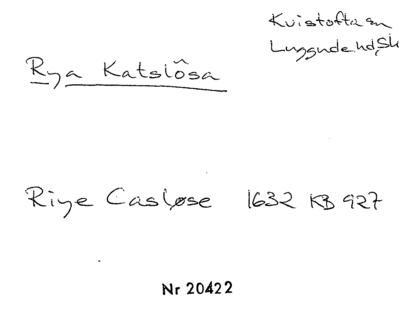 Kvistofta sn
Luggude hd, Sk
Rya Katslôsa
Riye Casløse 1632 KB 927
Nr 20422